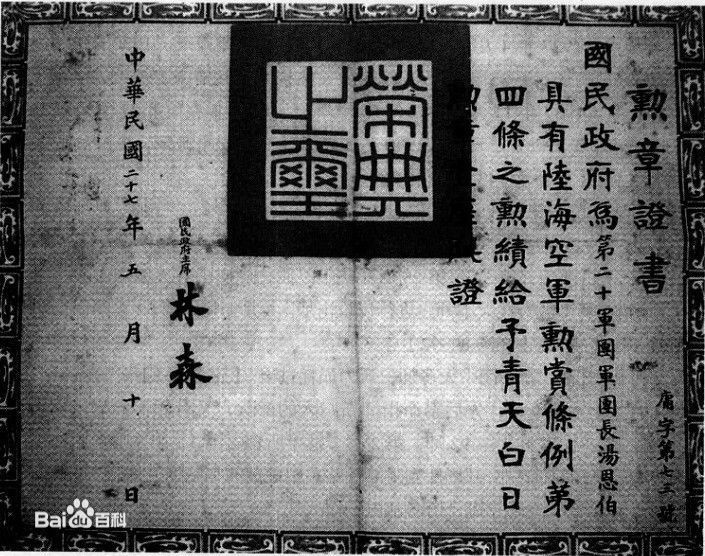 勲章證書
國民政府為第二十軍團軍團長湯恩伯
具有陸海空軍勲賞條例第
四條之勲績給予青天白日
勲章 證
榮典
之璽
國民政府主席
林森
中華民國二十七年五月十日
字第七三號
Bai 百科